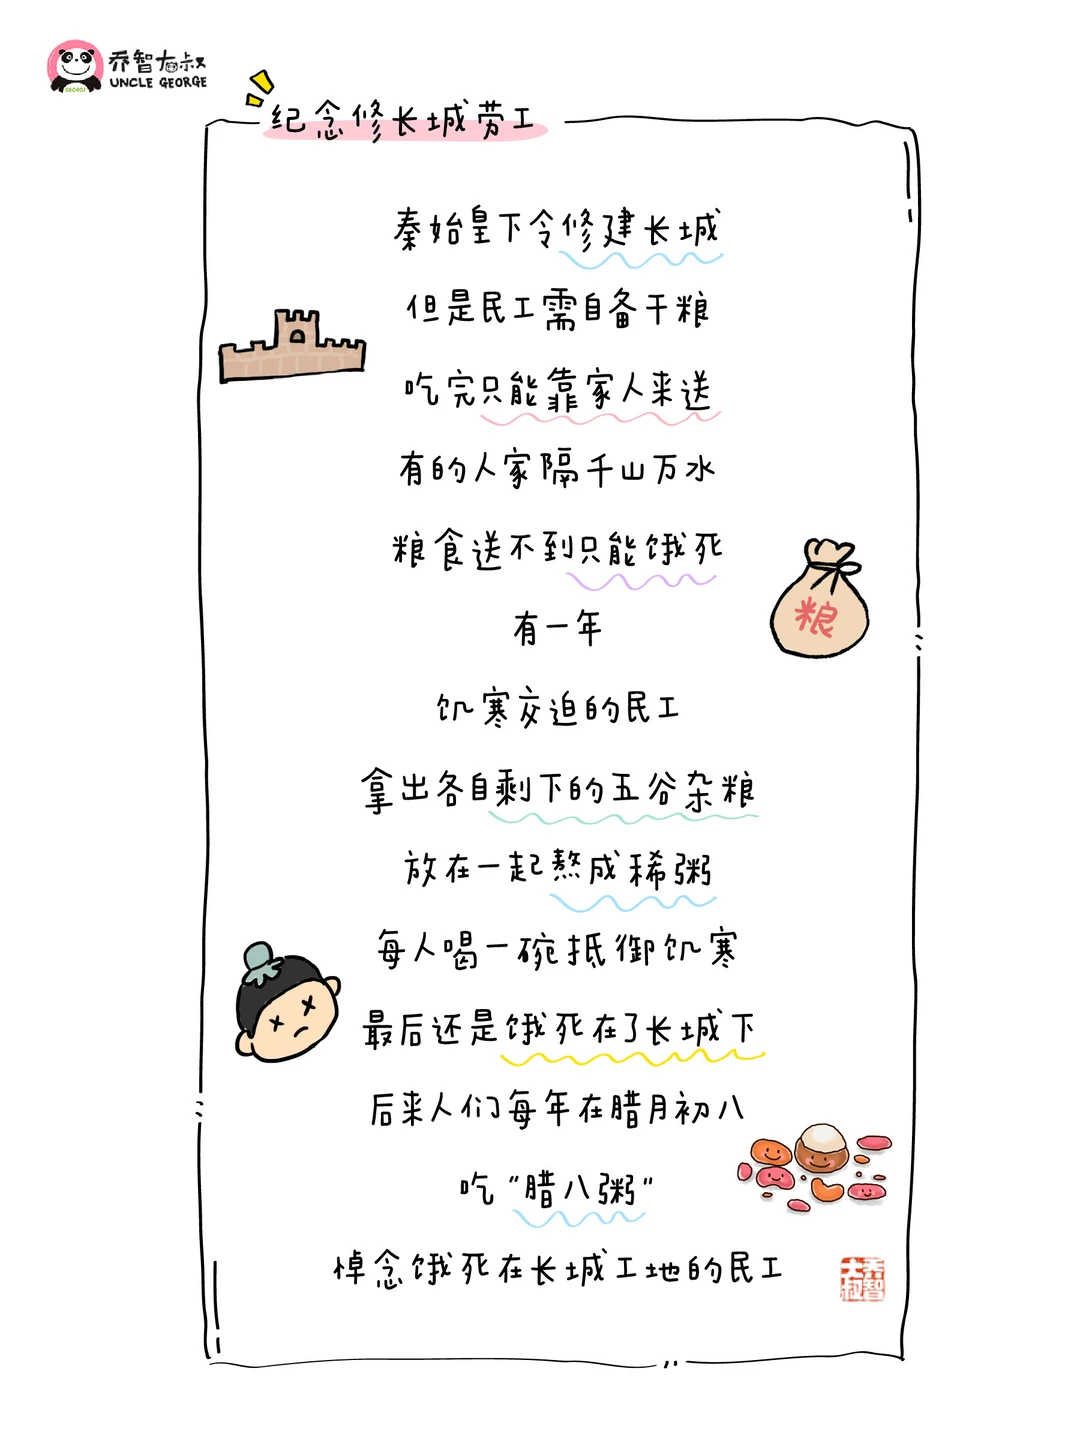 乔智大叔
UNCLE GEORGE
GEORGE
纪念修长城劳工
秦始皇下令修建长城
但是民工需自备干粮
吃完只能靠家人来送
有的人家隔千山万水
粮食送不到只能饿死
粮
有一年
饥寒交迫的民工
拿出各自剩下的五谷杂粮
放在一起熬成稀粥
每人喝一碗抵御饥寒
最后还是饿死在了长城下
后来人们每年在腊月初八
吃"腊八粥"
悼念饿死在长城工地的民工
乔智大叔